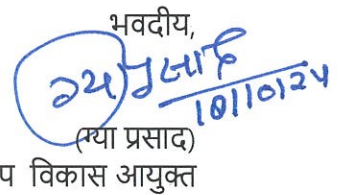 भवदीय,
18/10/24
(ग्या प्रसाद)
प विकास आयुक्त